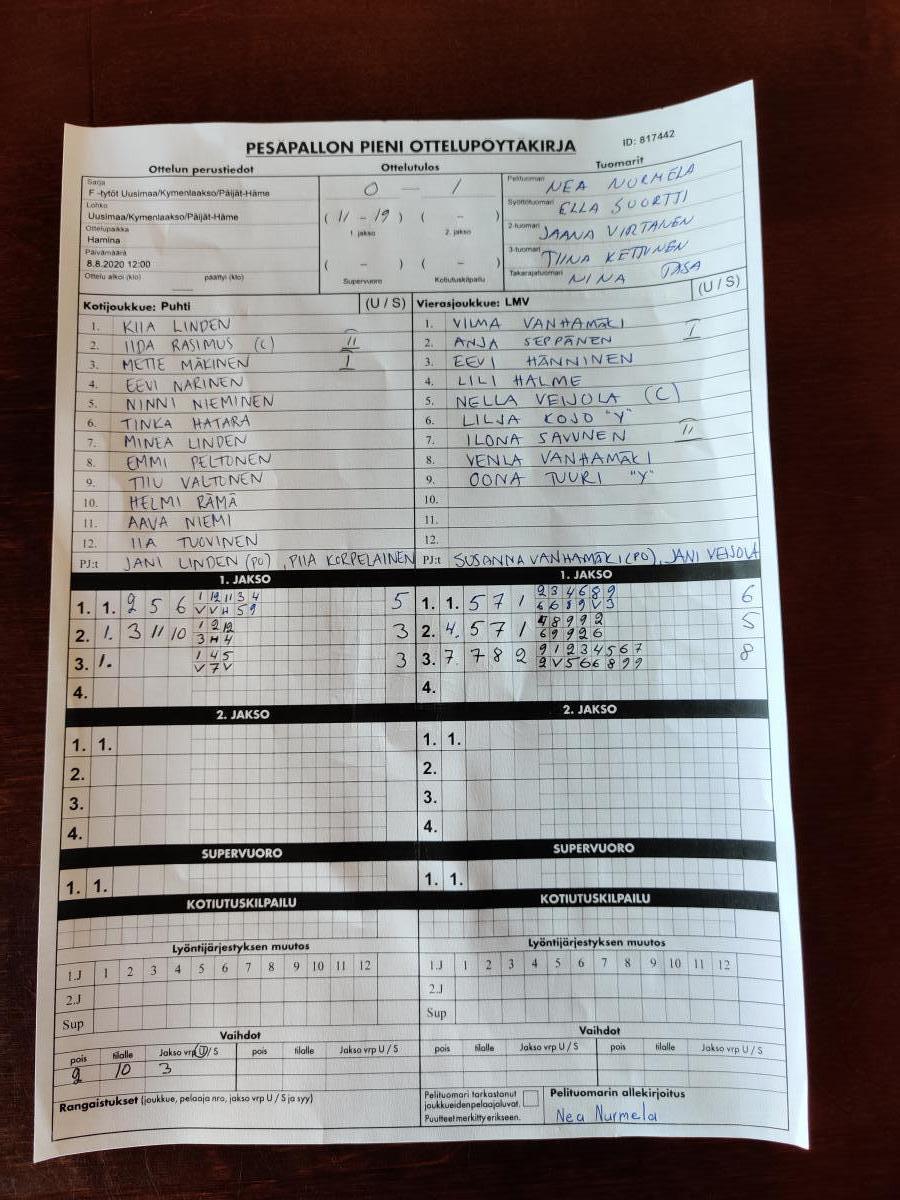 PESÄPALLON PIENI OTTELUPÖYTÄKIRJA
ID: 817442
Ottelun perustiedot
Ottelutulos
Tuomarit
Sarja
F -tytöt Uusimaa/Kymenlaakso/Päijät-Häme
Lohko
Uusimaa/Kymenlaakso/Päijät-Häme
Ottelupaikka
Hamina
Päivämäärä
8.8.2020 12:00
Ottelu alkoi (klo) päättyi (klo)
0 — 1
( 11 - 19 ) ( - )
1. jakso 2. jakso
( - ) ( - )
Supervuoro Kotiutuskilpailu
Pelituomari NEA NURMELA
Syöttötuomari ELLA SUORTTI
2-tuomari JAANA VIRTANEN
3-tuomari TIINA KETTUNEN
Takarajatuomari NINA TASA
Kotijoukkue: Puhti (U / S)
1. KIIA LINDEN
2. IIDA RASIMUS (C) II
3. METTE MÄKINEN I
4. EEVI NARINEN
5. NINNI NIEMINEN
6. TINKA HATARA
7. MINEA LINDEN
8. EMMI PELTONEN
9. TIIU VALTONEN
10. HELMI RÄMÄ
11. AAVA NIEMI
12. IIA TUOVINEN
PJ:t JANI LINDEN (PO), PIIA KORPELAINEN
Vierasjoukkue: LMV (U / S)
1. VILMA VANHAMÄKI I
2. ANJA SEPPÄNEN
3. EEVI HÄNNINEN
4. LILI HALME
5. NELLA VEIJOLA (C)
6. LILJA KOJO "Y"
7. ILONA SAVUNEN II
8. VENLA VANHAMÄKI
9. OONA TUURI "Y"
10.
11.
12.
PJ:t SUSANNA VANHAMÄKI (PO), JANI VEIJOLA
1. JAKSO
1. 1. 2 5 6 1 12 11 3 4 5
V V H 5 9
2. 1. 3 11 10 1 2 12 3
3 H 4
3. 1. 1 4 5 3
V 7 V
4.
1. JAKSO
1. 1. 5 7 1 2 3 4 6 8 9 6
6 6 8 9 V 3
2. 4. 5 7 1 8 9 9 2 5
6 9 9 2 6
3. 7. 7 8 2 9 1 2 3 4 5 6 7 8
2 V 5 6 6 8 9 9
4.
2. JAKSO
1. 1.
2.
3.
4.
2. JAKSO
1. 1.
2.
3.
4.
SUPERVUORO
1. 1.
SUPERVUORO
1. 1.
KOTIUTUSKILPAILU
KOTIUTUSKILPAILU
Lyöntijärjestyksen muutos
1.J 1 2 3 4 5 6 7 8 9 10 11 12
2.J
Sup
Lyöntijärjestyksen muutos
1.J 1 2 3 4 5 6 7 8 9 10 11 12
2.J
Sup
Vaihdot
pois tilalle Jakso vrp U / S pois tilalle Jakso vrp U / S
9 10 3
Vaihdot
pois tilalle Jakso vrp U / S pois tilalle Jakso vrp U / S
Rangaistukset (joukkue, pelaaja nro, jakso vrp U / S ja syy)
Pelituomari tarkastanut
joukkueidenpelaajaluvat.
Puutteet merkitty erikseen.
Pelituomarin allekirjoitus
Nea Nurmela